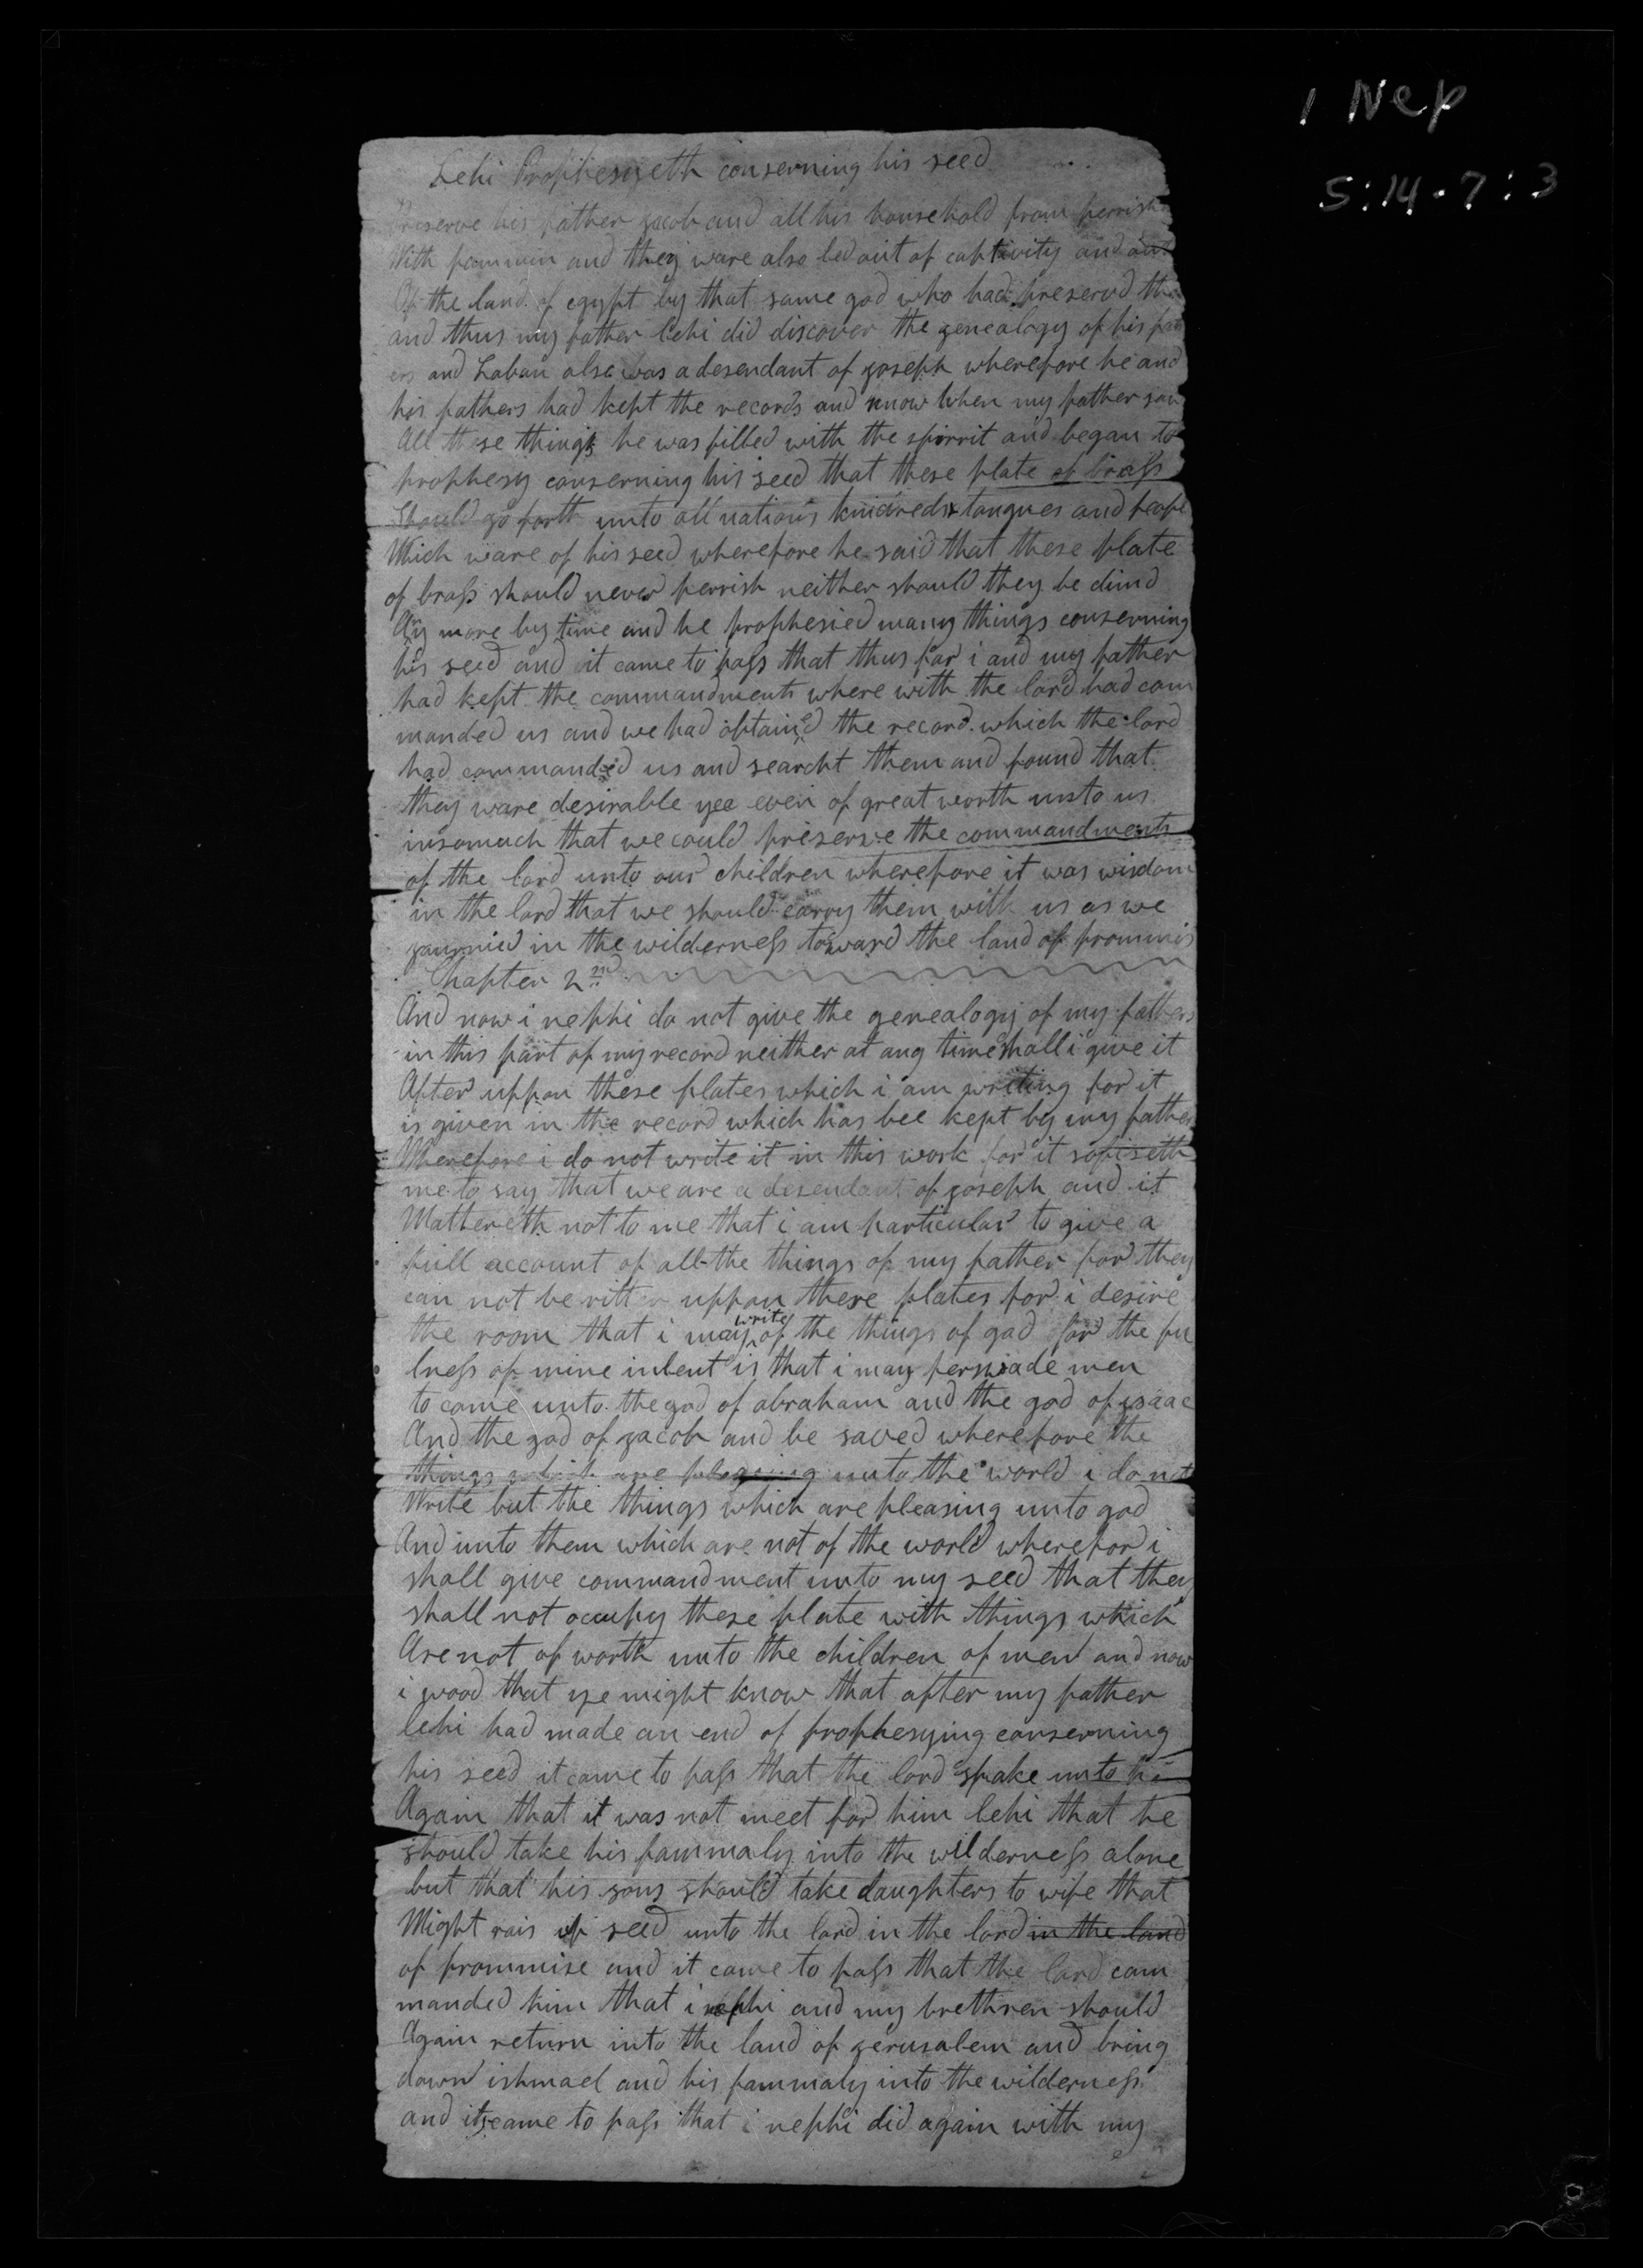 1 Nep
5:14-7:3
Lehi Prophesyeth conserning his seed
Preserve his father jacob and all his household from perrish
With fammin and they ware also led out of captivity and out
Of the land of egypt by that same god who had preservd the
and thus my father lehi did discover the genealogy of his fath
ers and Laban also was a desendant of joseph wherefore he and
his fathers had kept the records and now when my father saw
All these things he was filled with the spirrit and began to
prophesy conserning his seed that these plate of brass
should go forth unto all nations kindreds tongues and people
Which ware of his seed wherefore he said that these plate
of brass should never perrish neither should they be dimd
Any more by time and he prophesied many things conserning
his seed and it came to pass that thus far i and my father
had kept the commandments where with the lord had com
manded us and we had obtained the record which the lord
had commanded us and searcht them and found that
they ware desirable yea even of great worth unto us
insomuch that we could preserve the commandments
of the lord unto our children wherefore it was wisdom
in the lord that we should carry them with us as we
journied in the wilderness toward the land of prommis
Chapter 2nd
And now i nephi do not give the genealogy of my fathers
in this part of my record neither at any time shall i give it
After uppon these plates which i am writing for it
is given in the record which has bee kept by my father
Wherefore i do not write it in this work for it sofiseth
me to say that we are a desendant of joseph and it
Mattereth not to me that i am particular to give a
full account of all the things of my father for they
can not be ritten uppon these plates for i desire
the room that i may write of the things of god for the fu
lness of mine intent is that i may perswade men
to come unto the god of abraham and the god of isaac
And the god of jacob and be saved wherefore the
things which are pleasing unto the world i do not
Write but the things which are pleasing unto god
And unto them which are not of the world wherefor i
shall give commandment unto my seed that they
shall not occupy these plate with things which
Are not of worth unto the children of men and now
i wood that ye might know that after my father
lehi had made an end of prophesying conserning
his seed it came to pass that the lord spake unto him
Again that it was not meet for him lehi that he
should take his fammaly into the wilderness alone
but that his sons should take daughters to wife that
Might rais up seed unto the lord in the lord in the land
of prommise and it came to pass that the lord com
manded him that i nephi and my brethren should
Again return into the land of jerusalem and bring
down ishmael and his fammaly into the wilderness
and it came to pass that i nephi did again with my